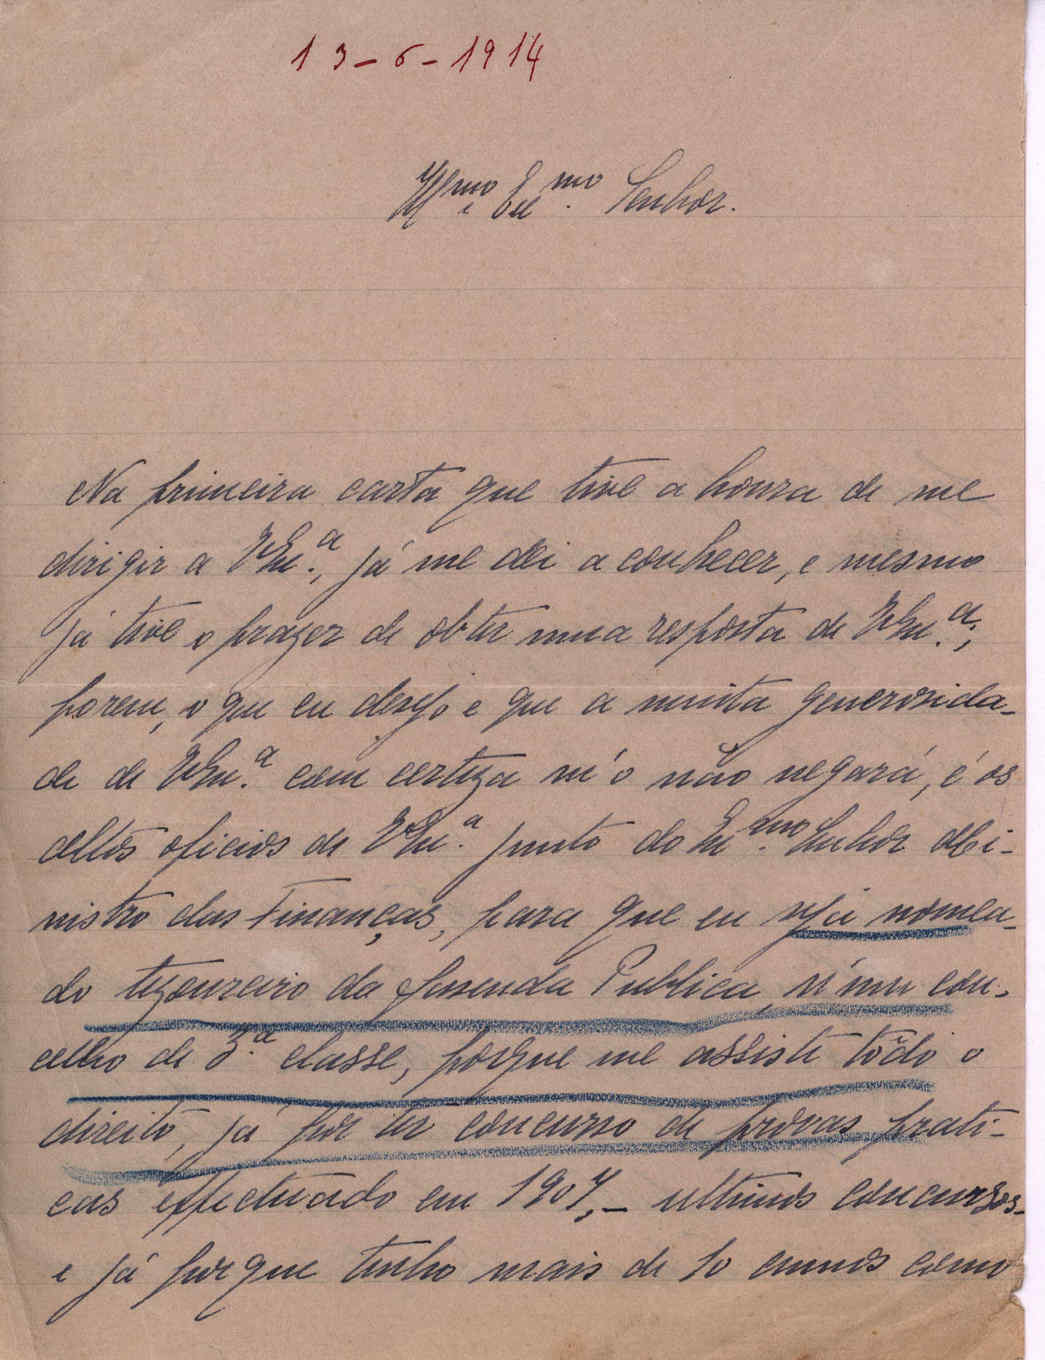 13-6-1914
Illmo e Exmo. Senhor.
Na primeira carta que tive a honra de me
dirigir a V Exa., já me dei a conhecer, e mesmo
já tive o prazer de obter uma resposta de V Exa.;
porem, o que eu desejo e que a muita generosida-
de de V Exa. com certeza m'o não negará, é os
altos oficios de V Exa. junto do Exmo. Senhor Mi-
nistro das Finanças, para que eu seja nomea-
do tezoureiro da fasenda Publica, n'um con-
celho de 3.a classe, porque me assiste todo o
direito, já por ter concurso de provas prati-
cas effectuado em 1907, - ultimos concursos -
e já porque tenho mais de 10 annos como